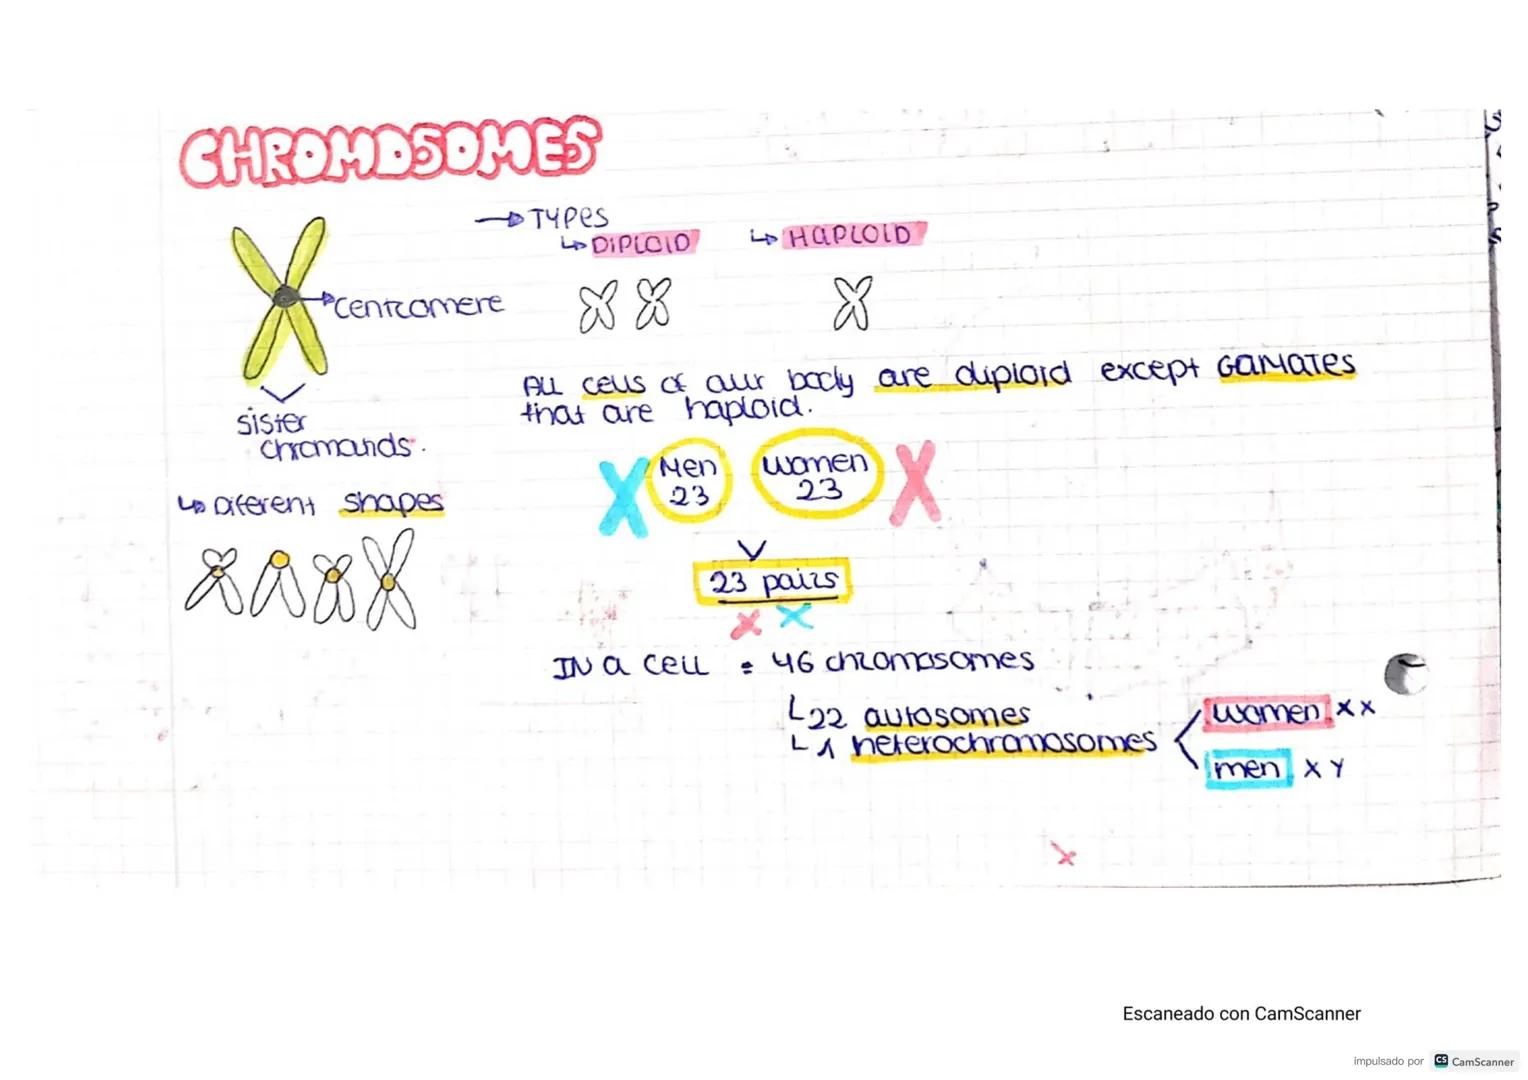 CHROMOSOMES
TYPES
DIPLOID
HAPLOID
Centromere
All cells of our body are diploid except GAMATES
that are haploid.
sister
chromatids.
Diferent shapes
Men
23
women
23
23 pairs
IN a cell = 46 chromosomes
22 autosomes
1 heterochromosomes
women XX
men XY
Escaneado con CamScanner
impulsado por CS CamScanner